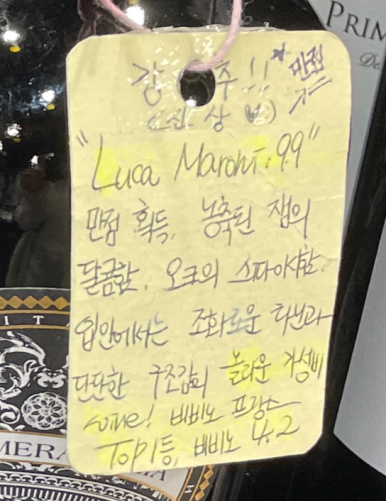 강 주!! *만점
(신 상 ♥)
"Luca Maroni. 99"
만점 획득, 농축된 잼의
달콤함, 오크의 스파이시함.
입안에서는 조화로운 타닌과
단단한 구조감의 놀라운 가성비
wine! 비비노 프랑스
Top 1등, 비비노 4.2
PRIM
De
IT
MERA
A